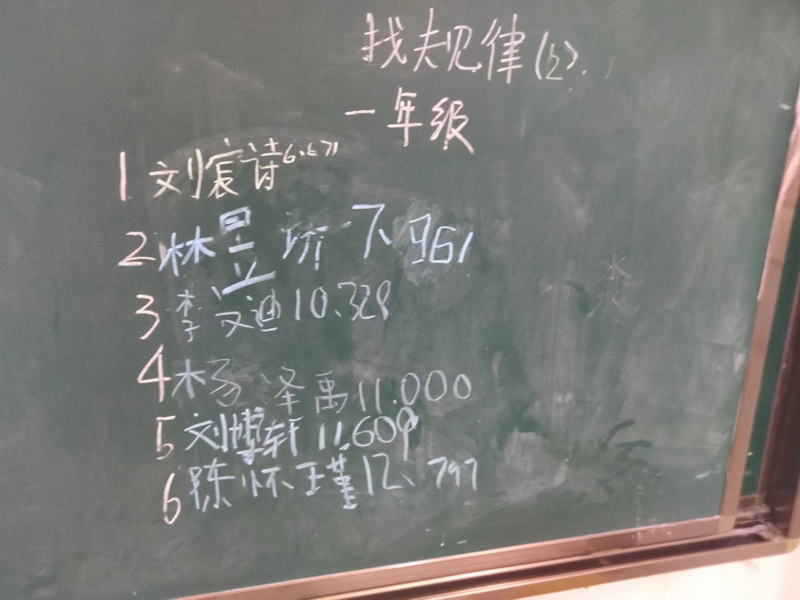 找规律(2)
一年级
1 刘宸诗 6.671
2 林昱圻 7.961
3 李汶迪 10.328
4 杨泽禹 11.000
5 刘博轩 11.609
6 陈怀瑾 12.797